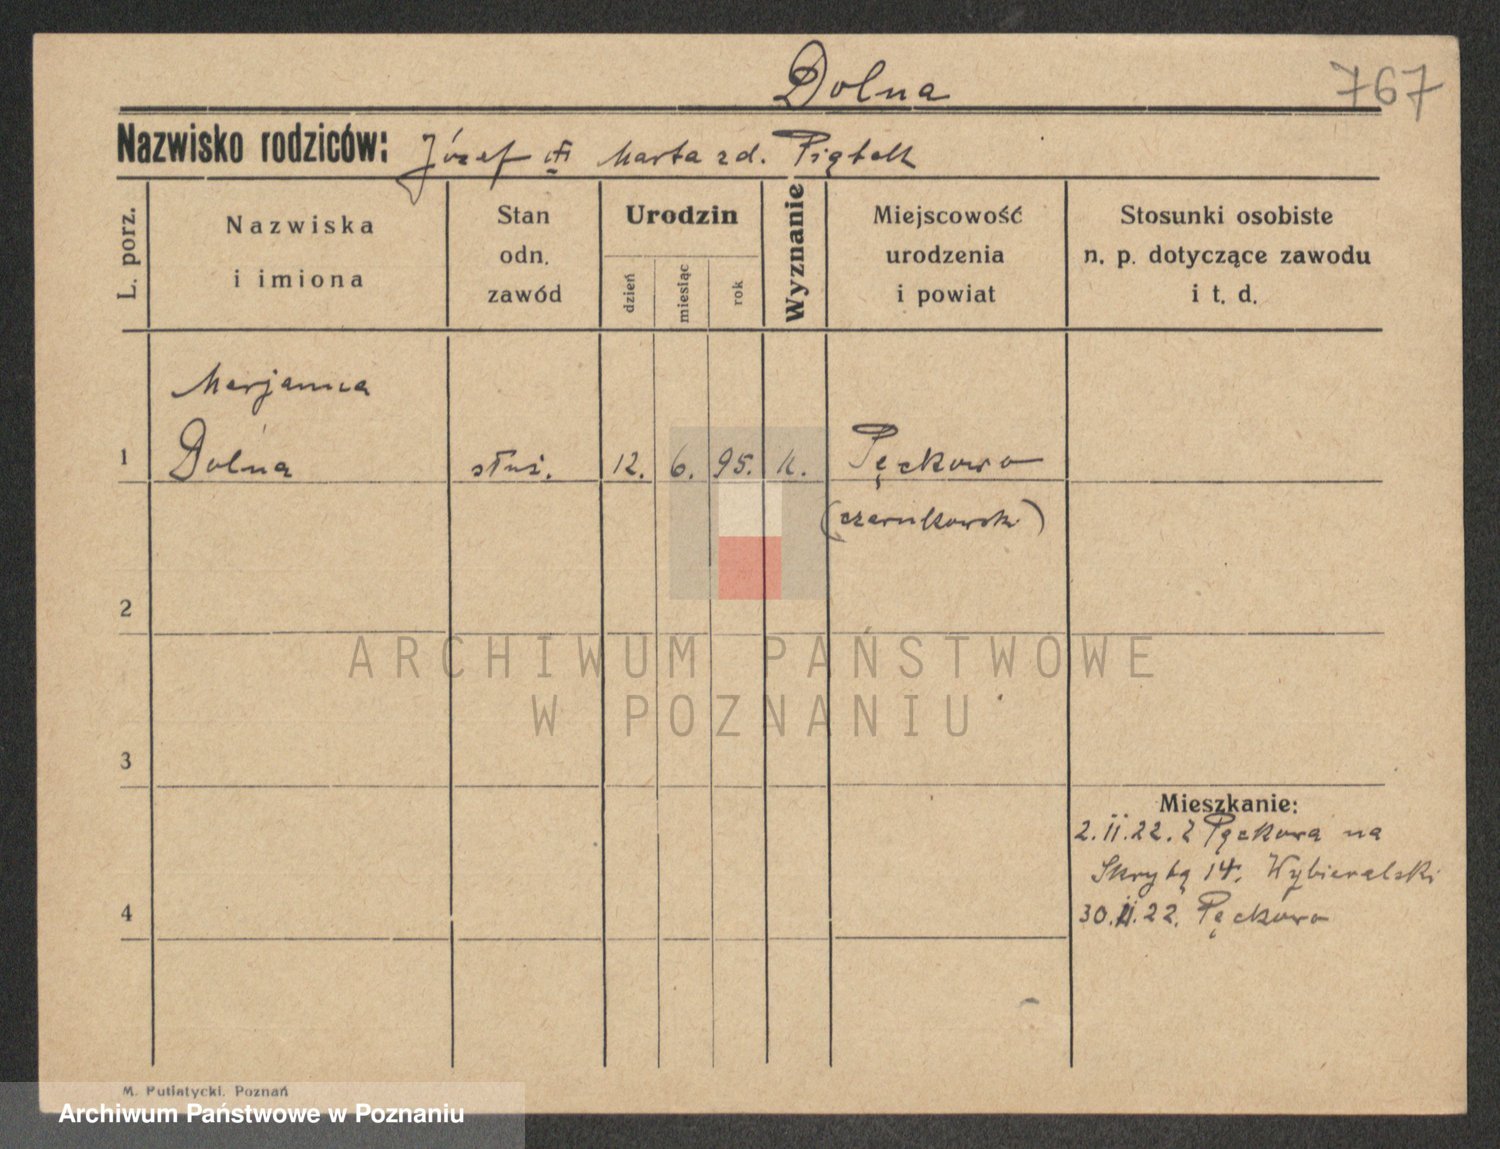 Dolna
767
Nazwisko rodziców: Józef i Marta zd. Piątek
L. porz.
Nazwiska
i imiona
Stan
odn.
zawód
Urodzin
dzień
miesiąc
rok
Wyznanie
Miejscowość
urodzenia
i powiat
Stosunki osobiste
n. p. dotyczące zawodu
i t. d.
Marjanna
1 Dolna służ. 12. 6. 95. k. Pęckowo
(czarnkowski)
2
ARCHIWUM PAŃSTWOWE
W POZNANIU
3
Mieszkanie:
2.II.22. z Pęckowa na
Skrytą 14. Wybieralski
4
30.II.22. Pęckowo
M. Putiatycki. Poznań
Archiwum Państwowe w Poznaniu